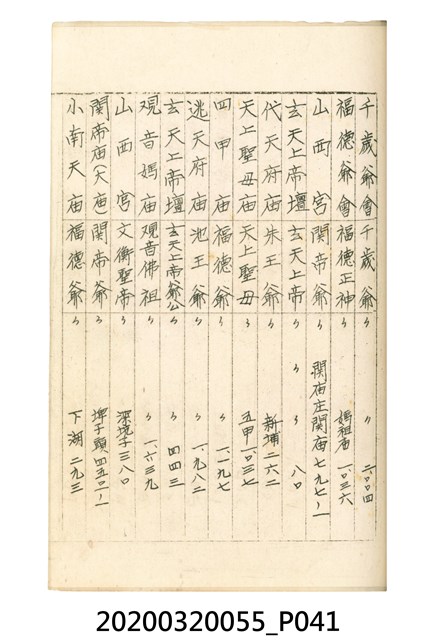 千歲爺會 千歲爺 〃 〃 二、〇〇四
福德爺會 福德正神 〃 媽祖庙 一、〇三六
山西宮 関帝爺 〃 関庙庄関庙七九七ノ一
玄天上帝壇 玄天上帝 〃 〃 〃 八〇
代天府庙 朱王爺 〃 新埔二六二
天上聖母庙 天上聖母 〃 五甲一、〇三七
四甲庙 福德爺 〃 〃 一、一九七
逃天府庙 池王爺 〃 〃 一、九八二
玄天上帝壇 玄天上帝爺公 〃 〃 四四三
观音媽庙 观音佛祖 〃 〃 一、六三九
山西宮 文衡聖帝 〃 深坑子三八〇
関帝庙(大庙) 関帝爺 〃 埤子頭四五〇ノ一
小南天庙 福德爺 〃 下湖二九三
20200320055_P041